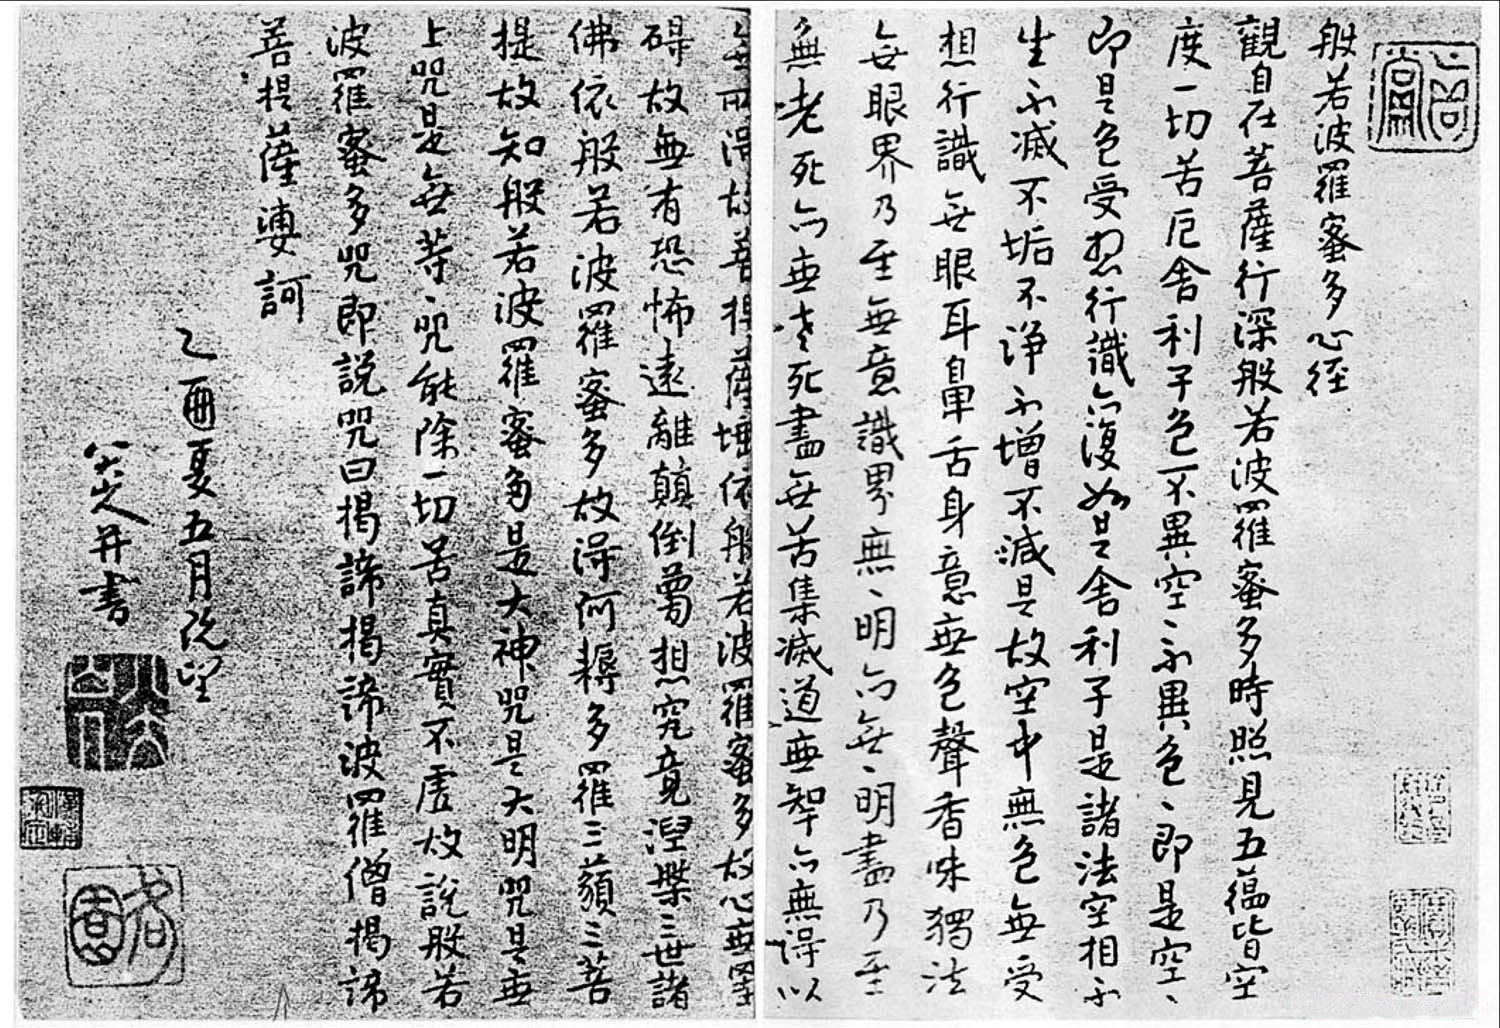 般若波羅蜜多心經
觀自在菩薩行深般若波羅蜜多時照見五蘊皆空
度一切苦厄舍利子色不異空、不異色、即是空、
即是色受想行識亦復如是舍利子是諸法空相不
生不滅不垢不淨不增不減是故空中無色無受
想行識無眼耳鼻舌身意無色聲香味觸法
無眼界乃至無意識界無、明亦無、明盡乃至
無老死亦無老死盡無苦集滅道無智亦無得以
無所得故菩提薩埵依般若波羅蜜多故心無罣
碍故無有恐怖遠離顛倒夢想究竟涅槃三世諸
佛依般若波羅蜜多故得阿耨多羅三藐三菩
提故知般若波羅蜜多是大神咒是大明咒是無
上咒是無等、咒能除一切苦真實不虛故說般若
波羅蜜多咒即說咒曰揭諦揭諦波羅僧揭諦
菩提薩婆訶
乙酉夏五月既望
八大人并書